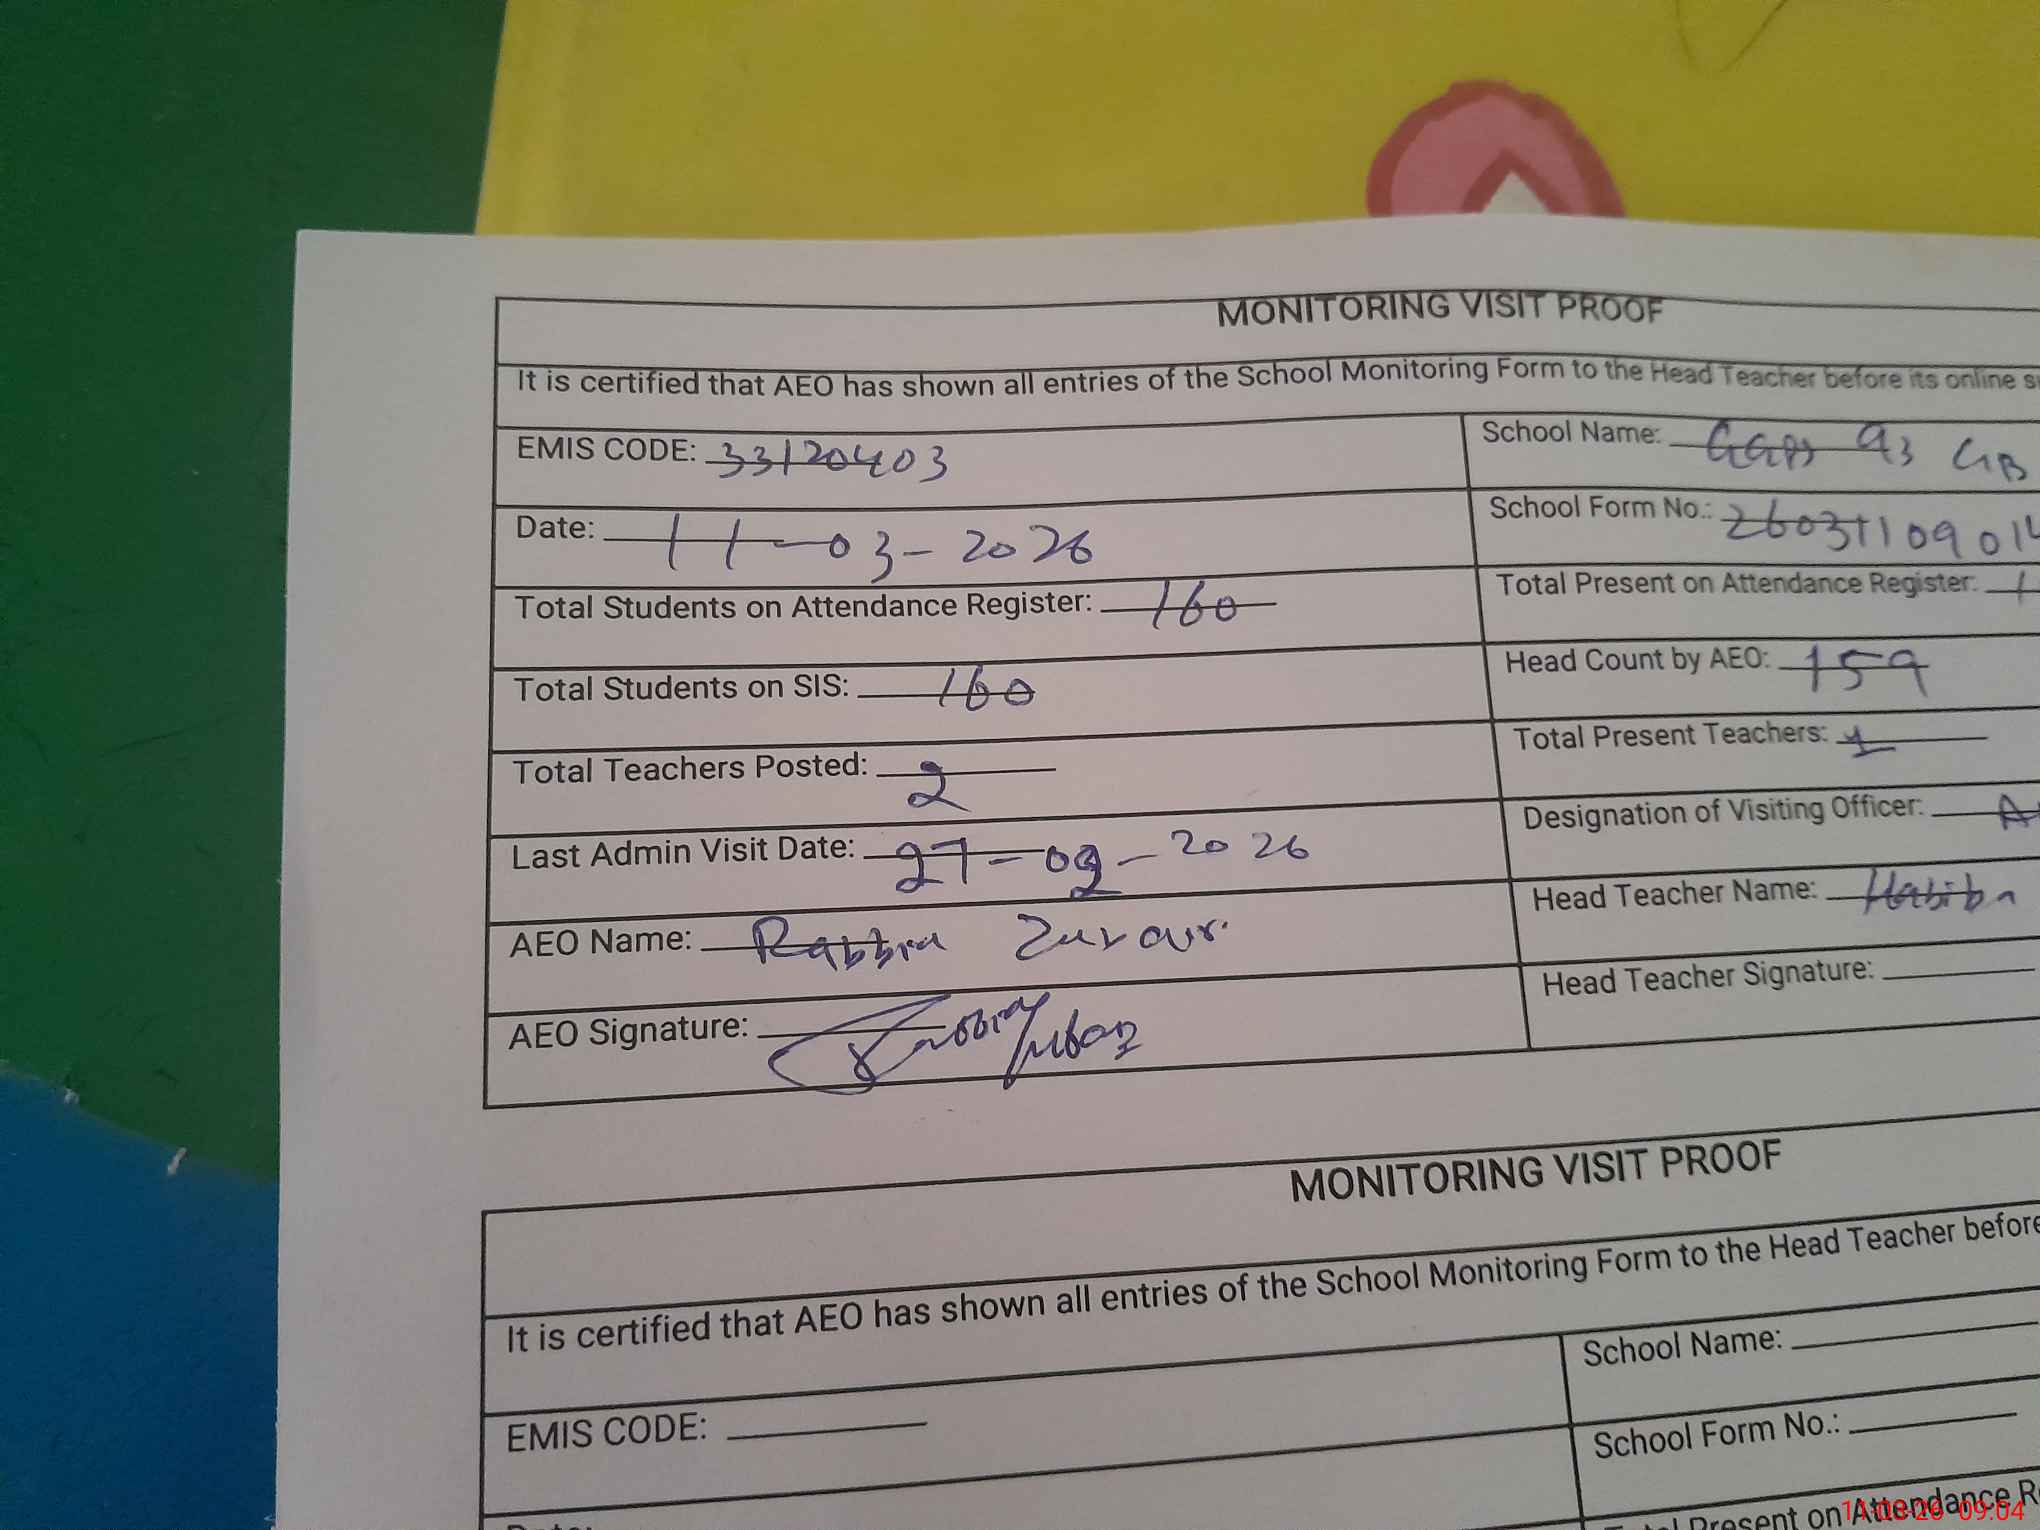 MONITORING VISIT PROOF
It is certified that AEO has shown all entries of the School Monitoring Form to the Head Teacher before its online
EMIS CODE: 33120403
School Name: GGPS 93 GB
Date: 11-03-2026
School Form No.: 26031109014
Total Students on Attendance Register: 160
Total Present on Attendance Register:
Total Students on SIS: 160
Head Count by AEO: 159
Total Teachers Posted: 2
Total Present Teachers: 1
Last Admin Visit Date: 27-02-2026
Designation of Visiting Officer:
AEO Name: Rabbia
Head Teacher Name: Habiba
AEO Signature:
Head Teacher Signature:
MONITORING VISIT PROOF
It is certified that AEO has shown all entries of the School Monitoring Form to the Head Teacher before
School Name:
EMIS CODE:
School Form No.:
Present on Attendance
11-03-26 09:04